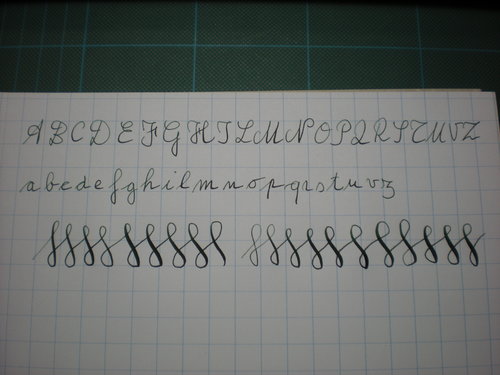 A B C D E F G H I L M N O P Q R S T U V Z
a b c d e f g h i l m n o p q r s t u v z